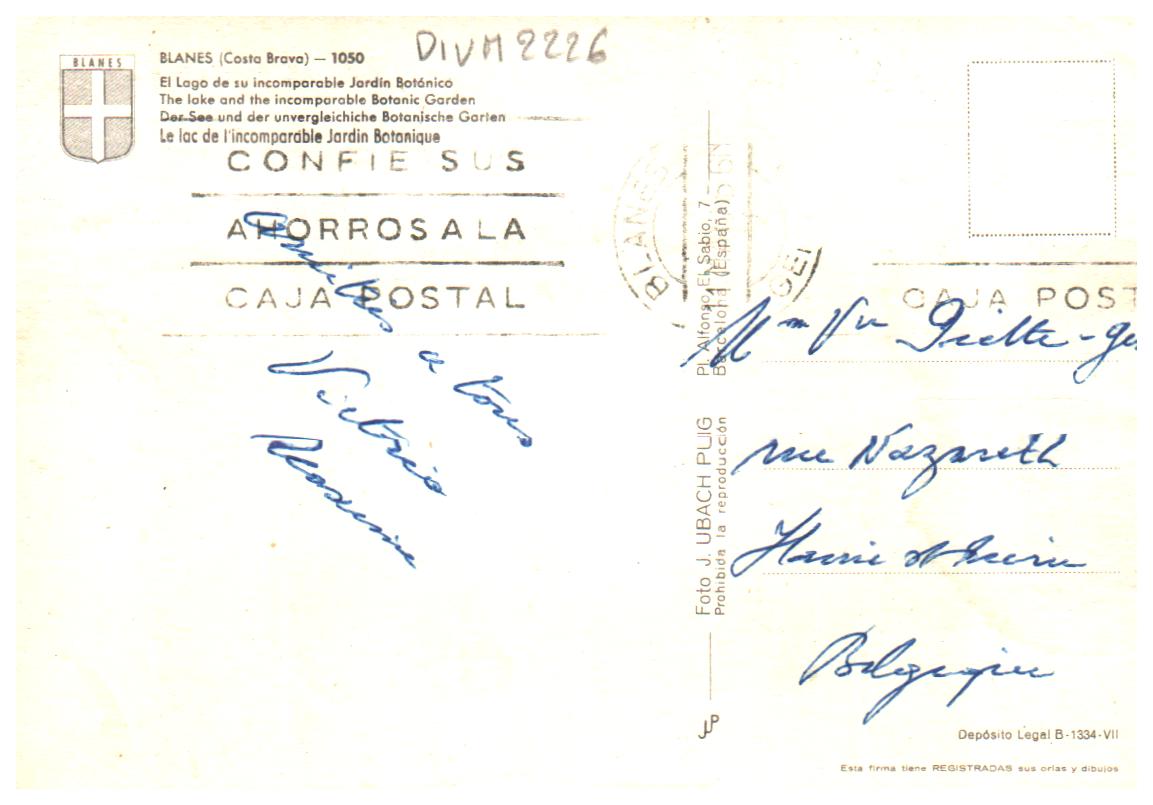 DIVM 2226
BLANES
BLANES (Costa Brava) — 1050
El Lago de su incomparable Jardín Botánico
The lake and the incomparable Botanic Garden
Der See und der unvergleichiche Botanische Garten
Le lac de l'incomparable Jardin Botanique
CONFIE SUS
AHORROS A LA
CAJA POSTAL
Amitiés
a tous
Victoria
Maxime
BLANES
Pl. Alfonso El Sabio, 7
Barcelona (España)
Foto J. UBACH PUIG
Prohibida la reproducción
JUP
CAJA POST
Mm Vve
rue Nazareth
Belgique
Depósito Legal B-1334-VII
Esta firma tiene REGISTRADAS sus orlas y dibujos